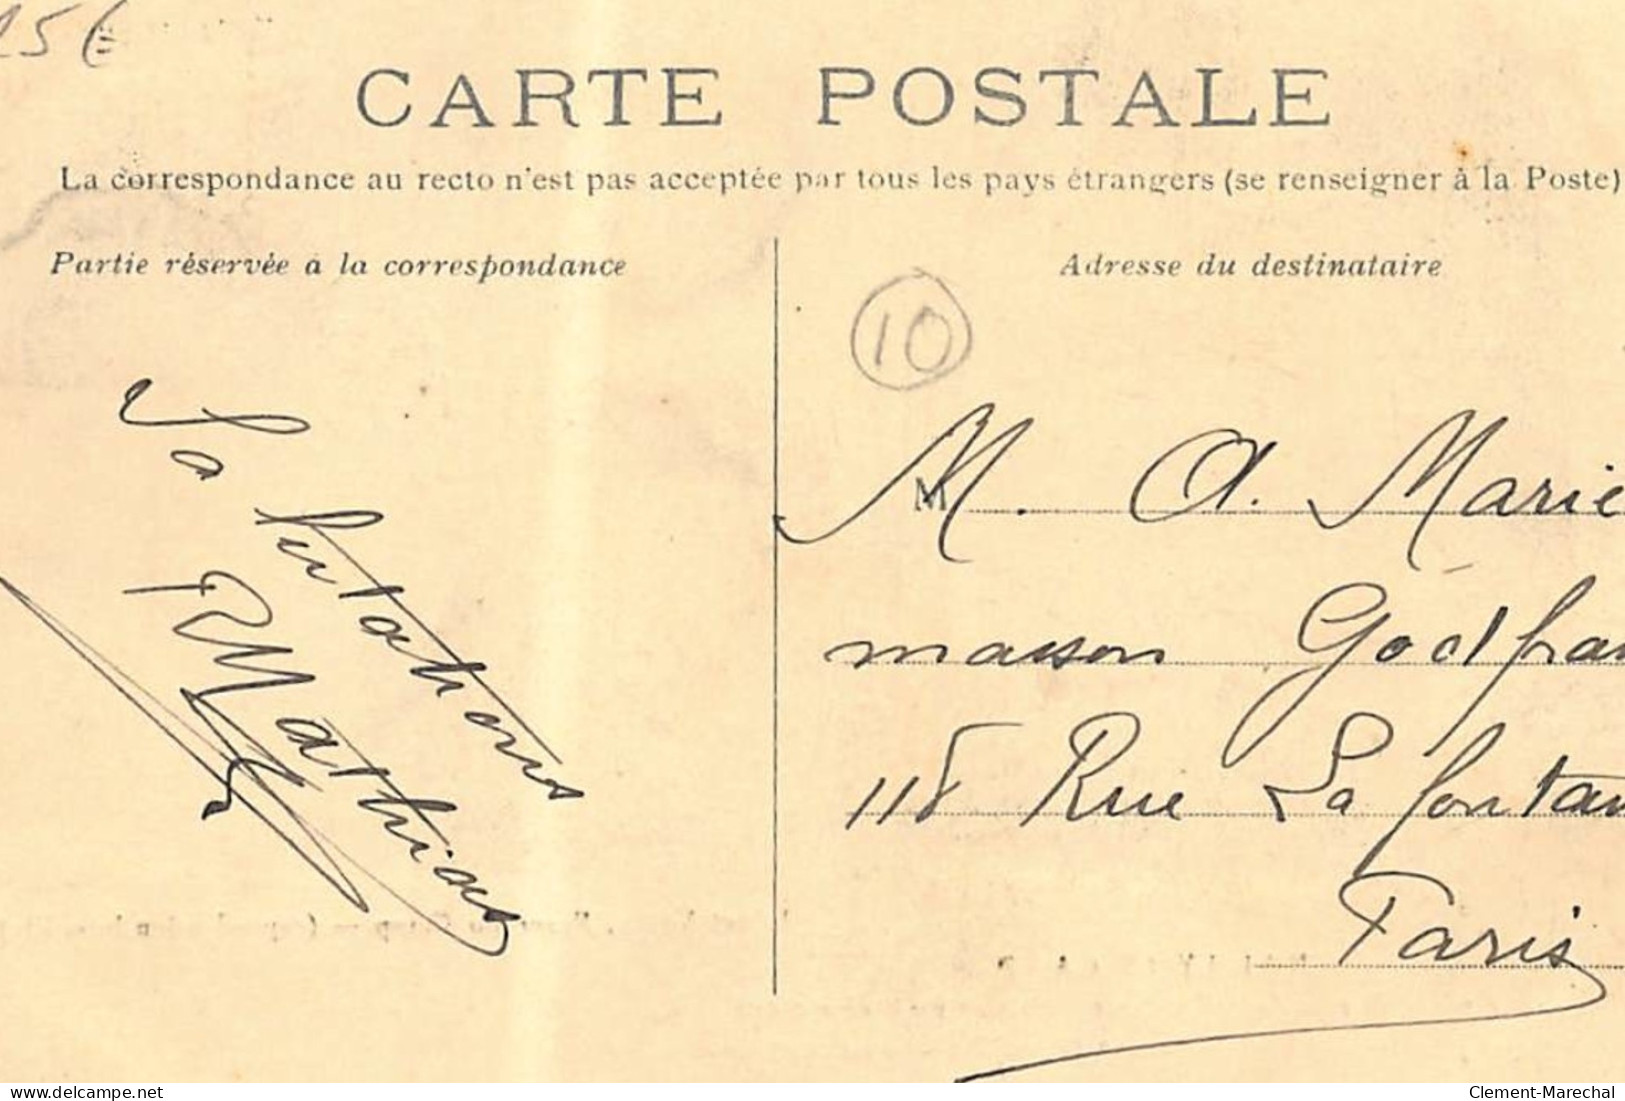 25€
CARTE POSTALE
La correspondance au recto n'est pas acceptée par tous les pays étrangers (se renseigner à la Poste)
Partie réservée à la correspondance
Adresse du destinataire
10
Salutations
RMathias
M. A. Marie
maison Godfra
118 Rue La Fontain
Paris
delcampe.net
Clement-Marechal